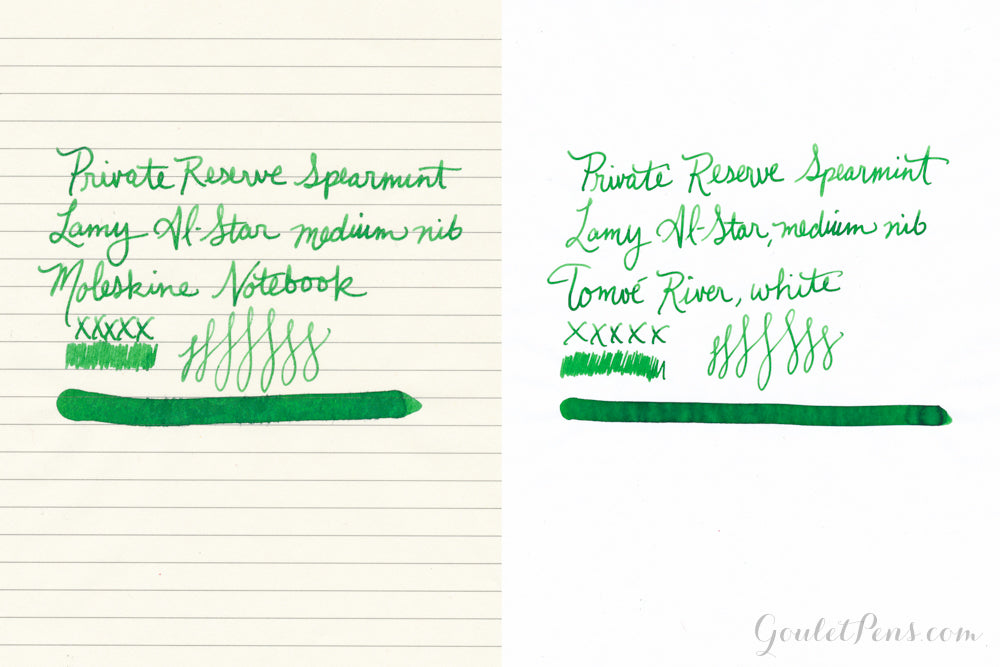 Private Reserve Spearmint
Lamy Al-Star medium nib
Moleskine Notebook
XXXXX
Private Reserve Spearmint
Lamy Al-Star, medium nib
Tomoé River, white
XXXXX
GouletPens.com